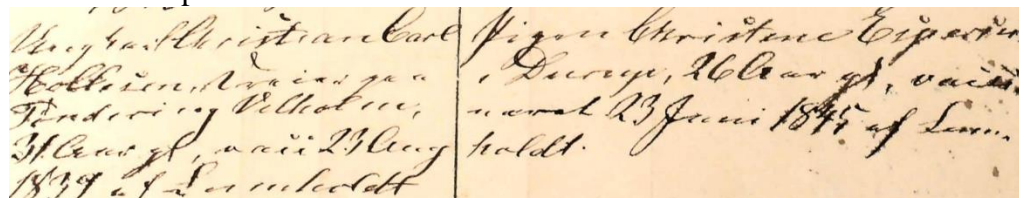 Ungkarl Christian Carl
Hollesen, Greier paa
Tondering Velholm,
31 Aar gl, vacc 23 Aug
1839 af Lumholdt
Pigen Christene Espersen
i Durup, 26 Aar gl, vacci-
neret 23 Juni 1845 af Lum-
holdt.